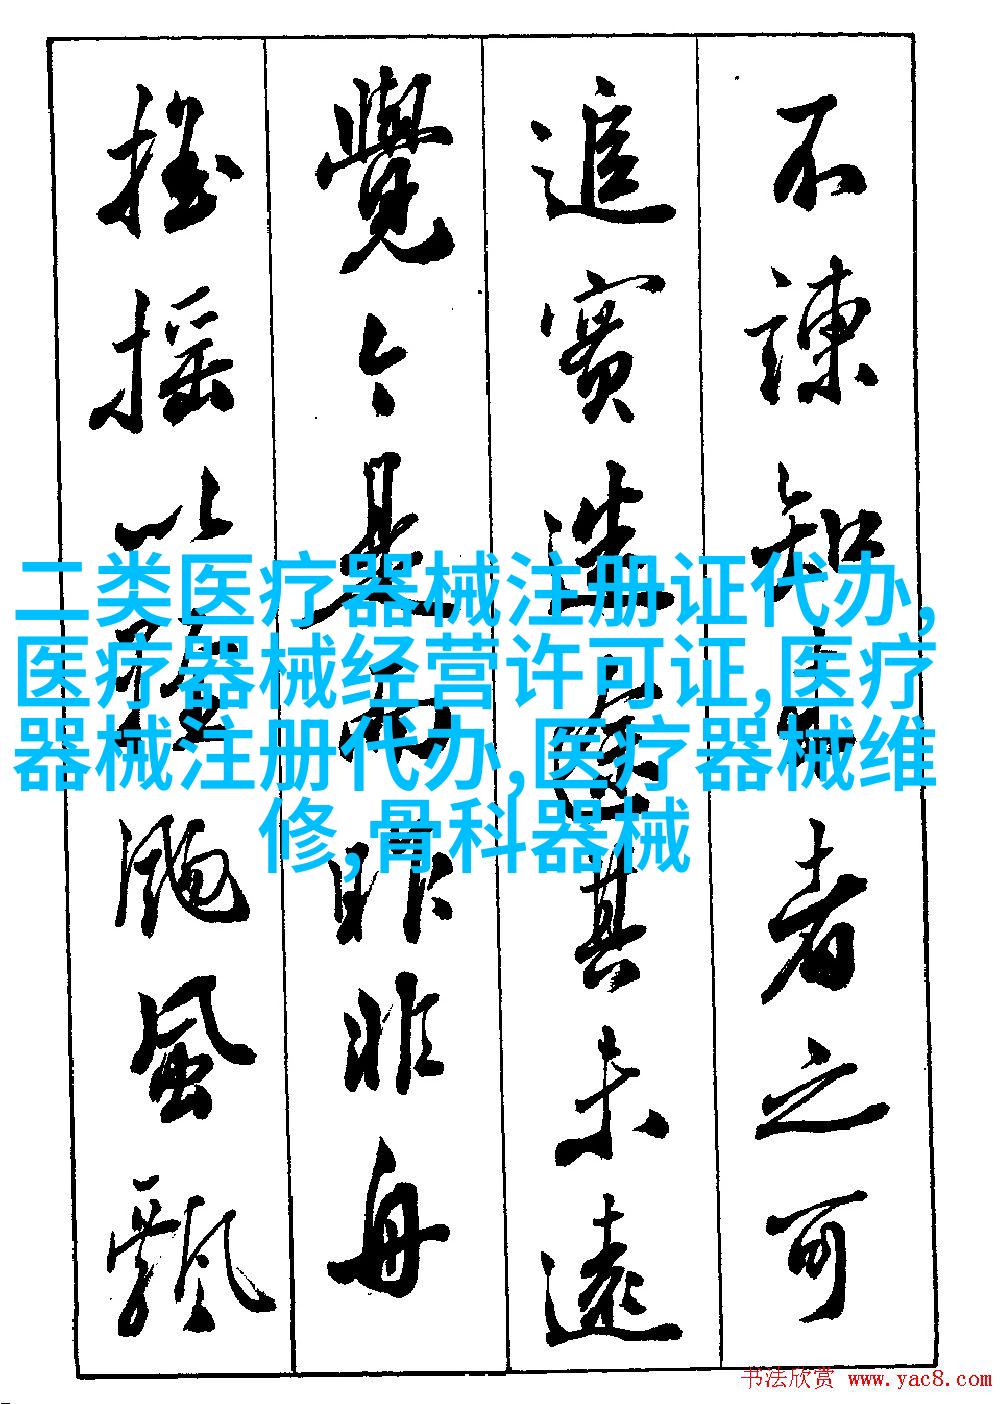 不諫知者之可
追實迷途其未遠
覺今是而昨非舟
摇摇以輕颺風飄
二类医疗器械注册证代办,
医疗器械经营许可证,医疗
器械注册代办,医疗器械维
修,骨科器械
书法欣赏 www.yac8.com